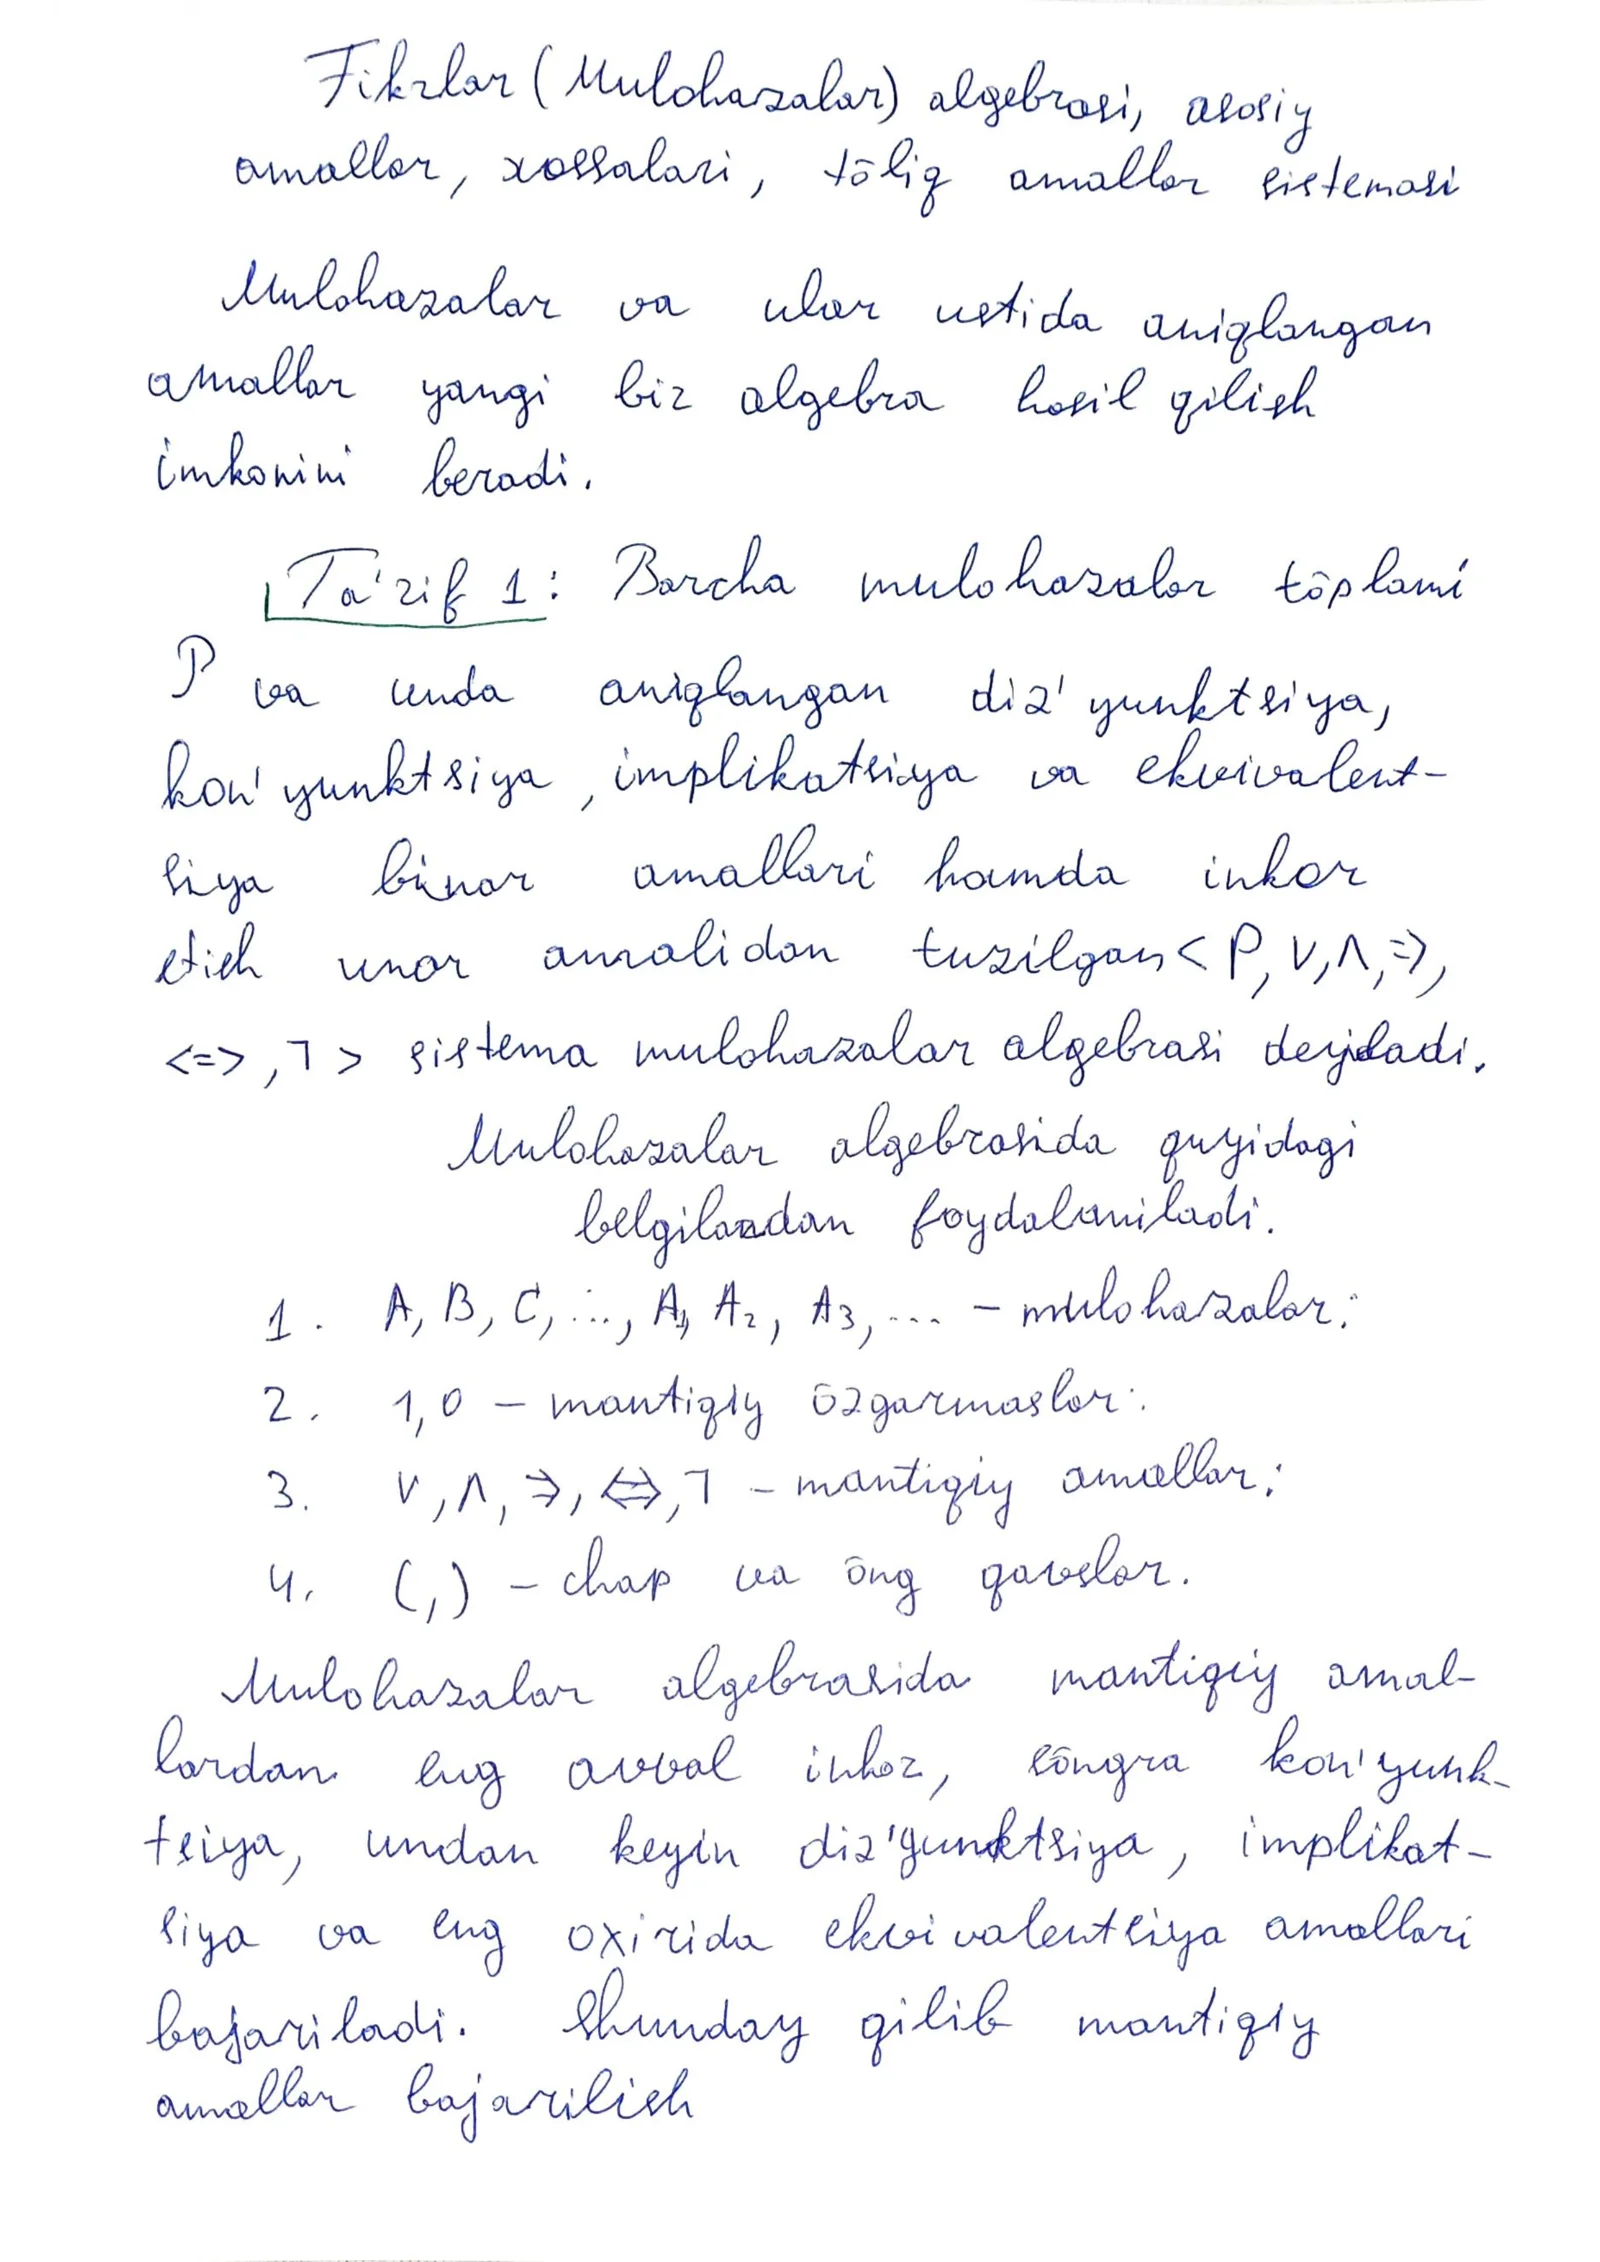 Fikrlar (Mulohazalar) algebrasi, asosiy
amallar, xossalari, tōliq amallar sistemasi
Mulohazalar va ular ustida aniqlangan
amallar yangi bir algebra hosil qilish
imkonini beradi.
Ta'rif 1: Barcha mulohazalar tōplami
P va unda aniqlangan diz'yunktsiya,
kon'yunktsiya, implikatsiya va ekvivalent-
siya binar amallari hamda inkor
etish unar amalidan tuzilgan < P, ∨, ∧, =>,
<=>, ⅂ > sistema mulohazalar algebrasi deyiladi.
Mulohazalar algebrasida quyidagi
belgilardan foydalaniladi.
1. A, B, C, ..., A₁, A₂, A₃, ... – mulohazalar;
2. 1,0 – mantiqiy ōzgarmaslar;
3. ∨, ∧, ⇒, ⇔, ⅂ – mantiqiy amallar;
4. (,) – chap va ōng qavslar.
Mulohazalar algebrasida mantiqiy amal-
lardan eng avval inkor, sōngra kon'yunk-
tsiya, undan keyin diz'yunktsiya, implikat-
siya va eng oxirida ekvivalentsiya amallari
bajariladi. Shunday qilib mantiqiy
amallar bajarilish